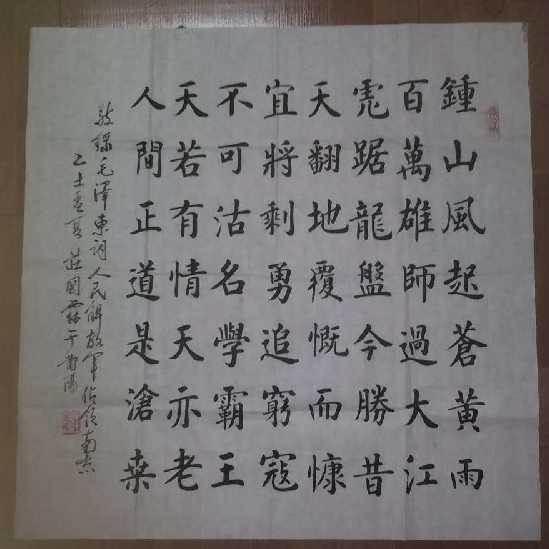 鍾山風起蒼黃雨
百萬雄師過大江
虎踞龍盤今勝昔
天翻地覆慨而慷
宜將剩勇追窮寇
不可沽名學霸王
天若有情天亦老
人間正道是滄桒
敬錄毛澤東詞人民解放軍佔領南京
莊國霖于